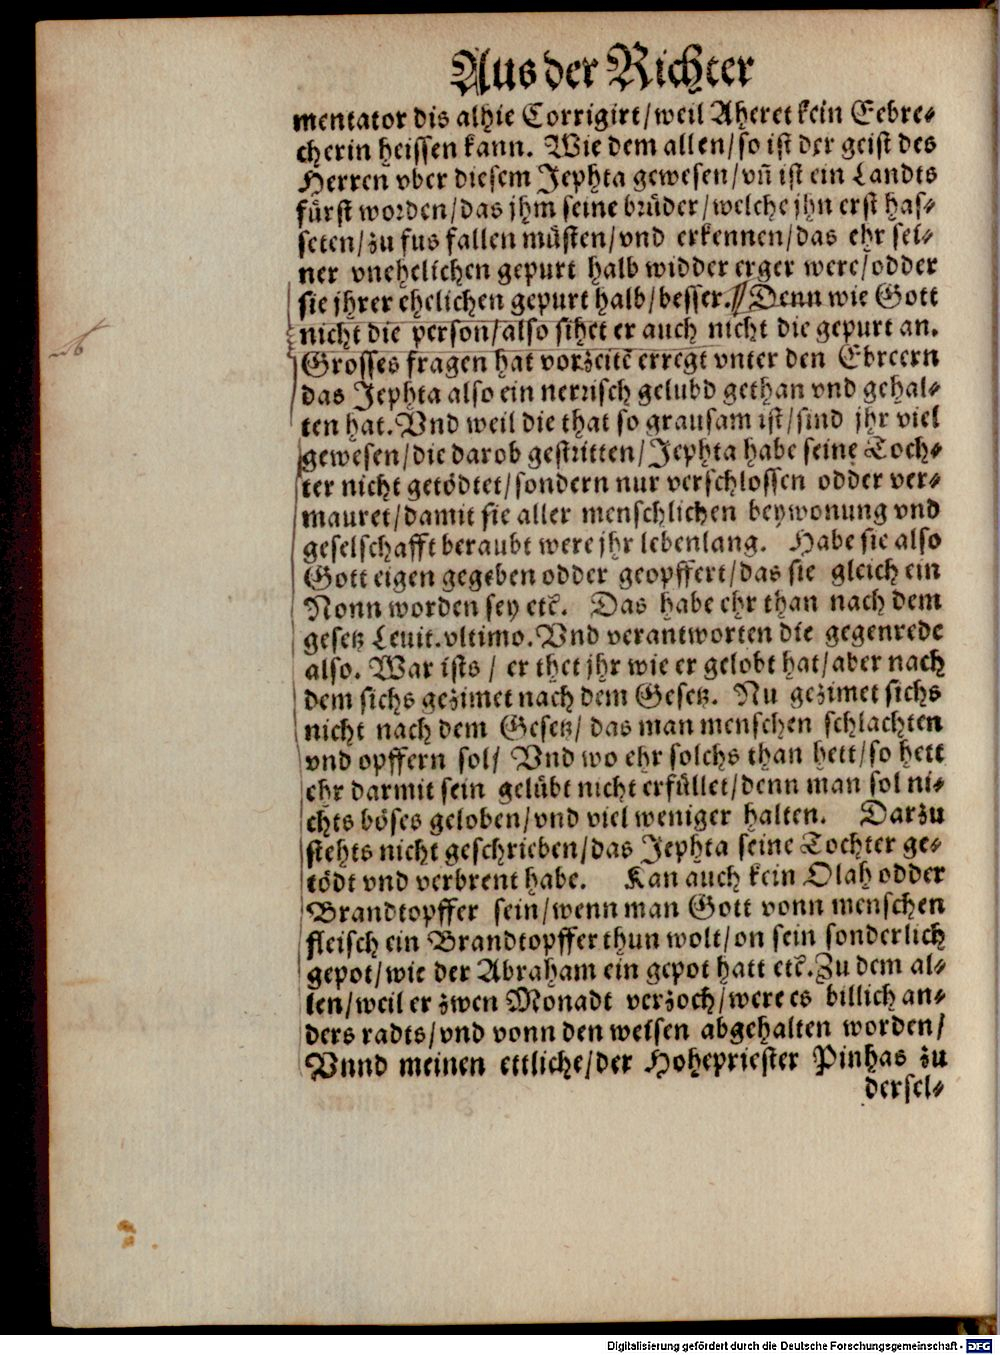 Aus der Richter
mentator dis alhie Corrigirt/weil Aheret kein Eebre⸗
cherin heissen kann. Wie dem allen/so ist der geist des
Herren vber diesem Jephta gewesen/vn̄ ist ein Landts
fürst worden/das jhm seine brüder/welche jhn erst has⸗
seten/zu fus fallen müsten/vnd erkennen/das ehr sei⸗
ner vnehelichen gepurt halb widder erger were/odder
sie jhrer ehelichen gepurt halb/besser. Denn wie Gott
nicht die person/also sihet er auch nicht die gepurt an.
Grosses fragen hat vorzeitē erregt vnter den Ebreern
das Jephta also ein nerrisch gelubd gethan vnd gehal⸗
ten hat. Vnd weil die that so grausam ist/sind jhr viel
gewesen/die darob gestritten/Jephta habe seine Toch⸗
ter nicht getödtet/sondern nur verschlossen odder ver⸗
mauret/damit sie aller menschlichen beywonung vnd
geselschafft beraubt were jhr lebenlang. Habe sie also
Gott eigen gegeben odder geopffert/das sie gleich ein
Nonn worden sey etc̄. Das habe ehr than nach dem
gesetz Leuit.vltimo. Vnd verantworten die gegenrede
also. War ists/ er thet jhr wie er gelobt hat/aber nach
dem sichs gezimet nach dem Gesetz. Nu gezimet sichs
nicht nach dem Gesetz/ das man menschen schlachten
vnd opffern sol/ Vnd wo ehr solchs than hett/so hett
ehr darmit sein gelübt nicht erfüllet/denn man sol ni⸗
chts böses geloben/vnd viel weniger halten. Darzu
stehts nicht geschrieben/das Jephta seine Tochter ge⸗
tödt vnd verbrent habe. Kan auch kein Olah odder
Brandtopffer sein/wenn man Gott vonn menschen
fleisch ein Brandtopffer thun wolt/on sein sonderlich
gepot/wie der Abraham ein gepot hatt etc̄. Zu dem al⸗
len/weil er zwen Monadt verzoch/were es billich an⸗
ders radts/vnd vonn den weisen abgehalten worden/
Vnnd meinen ettliche/der Hohepriester Pinhas zu
dersel⸗
Digitalisierung gefördert durch die Deutsche Forschungsgemeinschaft - DFG